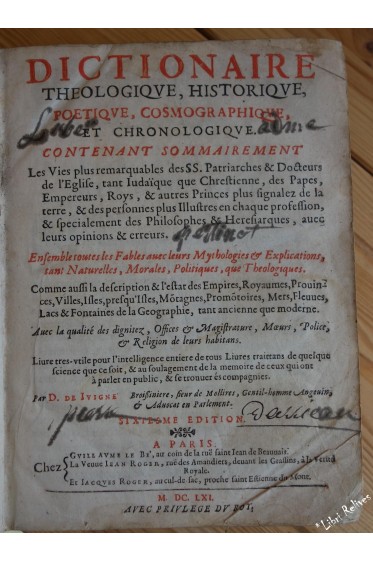 DICTIONAIRE
THEOLOGIQVE, HISTORIQVE,
POETIQVE, COSMOGRAPHIQVE,
ET CHRONOLOGIQVE.
CONTENANT SOMMAIREMENT
Les Vies plus remarquables des SS. Patriarches & Docteurs
de l'Eglise, tant Iudaïque que Chrestienne, des Papes,
Empereurs, Roys, & autres Princes plus signalez de la
terre, & des personnes plus Illustres en chaque profession,
& specialement des Philosophes & Heresiarques, auec
leurs opinions & erreurs.
Ensemble toutes les Fables auec leurs Mythologies & Explications,
tant Naturelles, Morales, Politiques, que Theologiques.
Comme aussi la description & l'estat des Empires, Royaumes, Prouin
ces, Villes, Isles, presqu'Isles, Mõtagnes, Promõtoires, Mers, Fleuues,
Lacs & Fontaines de la Geographie, tant ancienne que moderne.
Auec la qualité des dignitez, Offices & Magistrature, Mœurs, Police,
& Religion de leurs habitans.
Liure tres-vtile pour l'intelligence entiere de tous Liures traittans de quelque
science que ce soit, & au soulagement de la memoire de ceux qui ont
à parler en public, & se trouuer és compagnies.
PAR D. DE IVIGNE Broissiniere, sieur de Mollires, Gentil-homme Angeuin,
& Aduocat en Parlement.
SIXIESME EDITION.
A PARIS.
Chez
GVILLAVME LE BE', au coin de la ruë saint Iean de Beauuais.
La Veuue IEAN ROGER, ruë des Amandiers, deuant les Grassins, à la Verité
Royale.
Et IACQVES ROGER, au cul-de sac, proche saint Estienne du Mont.
M. DC. LXI.
AVEC PRIVILEGE DV ROY.
*Libri Relives